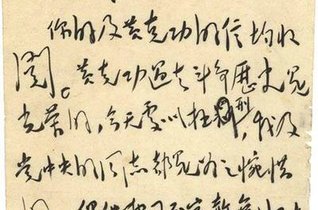 你的及黄克功的信均收
閱。黄克功过去斗争歷史是
光荣的,今天處以极刑,我及
党中央的同志都是为之惋惜